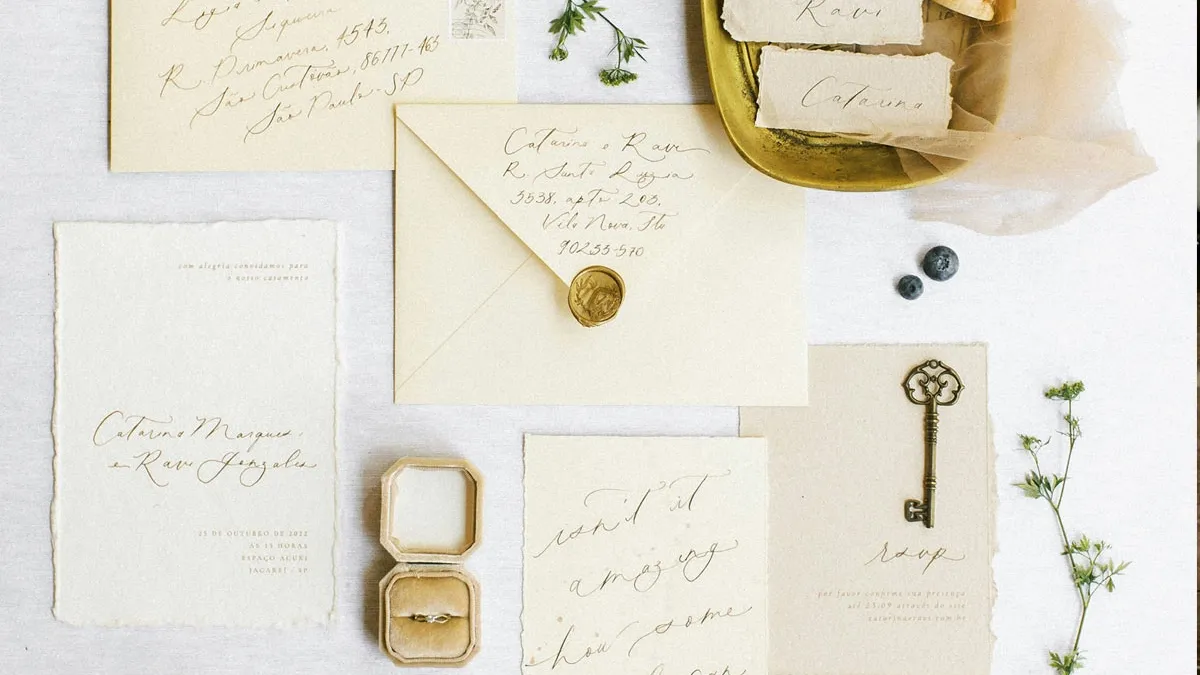 Siqueira
R. Primavera, 4543,
São Cristóvão, 86777-463
São Paulo - SP
Ravi
Catarina
Catarina e Ravi
R. Santa Luzia
3538, apto 203,
Vila Nova,
90233-570
com alegria convidamos para
o nosso casamento
Catarina Marques
e Ravi Gonzales
25 DE OUTUBRO DE 2022
ÀS 15 HORAS
ESPAÇO
JACAREÍ - SP
isn't it
amazing
how some
rsvp
por favor confirme sua presença
até 25.09 através do site